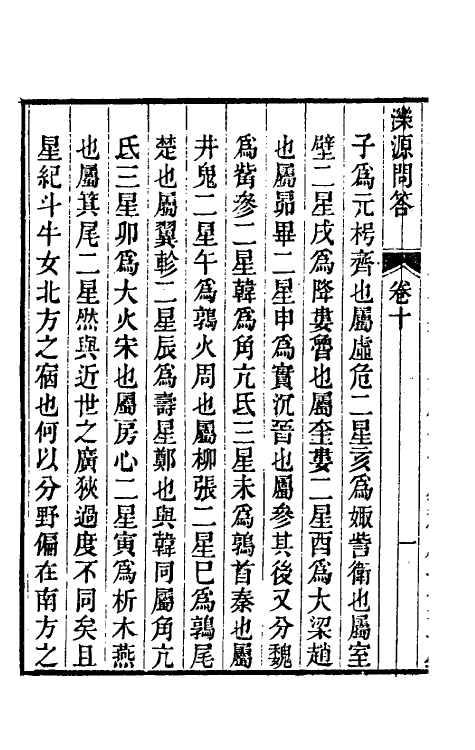 濼源問答
卷十
一
子爲元枵齊也屬虛危二星亥爲娵訾衛也屬室
壁二星戌爲降婁魯也屬奎婁二星酉爲大梁趙
也屬昴畢二星申爲實沉晉也屬參其後又分魏
爲觜參二星韓爲角亢氐三星未爲鶉首秦也屬
井鬼二星午爲鶉火周也屬柳張二星巳爲鶉尾
楚也屬翼軫二星辰爲壽星鄭也與韓同屬角亢
氐三星卯爲大火宋也屬房心二星寅爲析木燕
也屬箕尾二星然與近世之廣狹過度不同矣且
星紀斗牛女北方之宿也何以分野偏在南方之